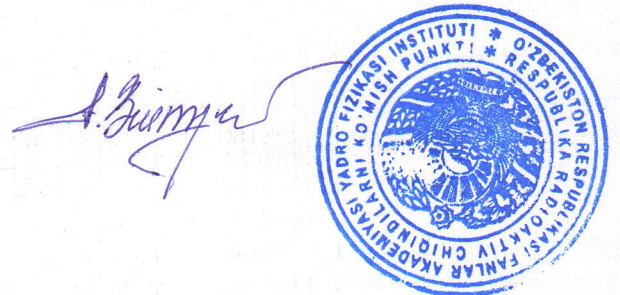 O'ZBEKISTON RESPUBLIKASI FANLAR AKADEMIYASI YADRO FIZIKASI INSTITUTI *
RESPUBLIKA RADIOAKTIV CHIQINDILARNI KO'MISH PUNKTI *